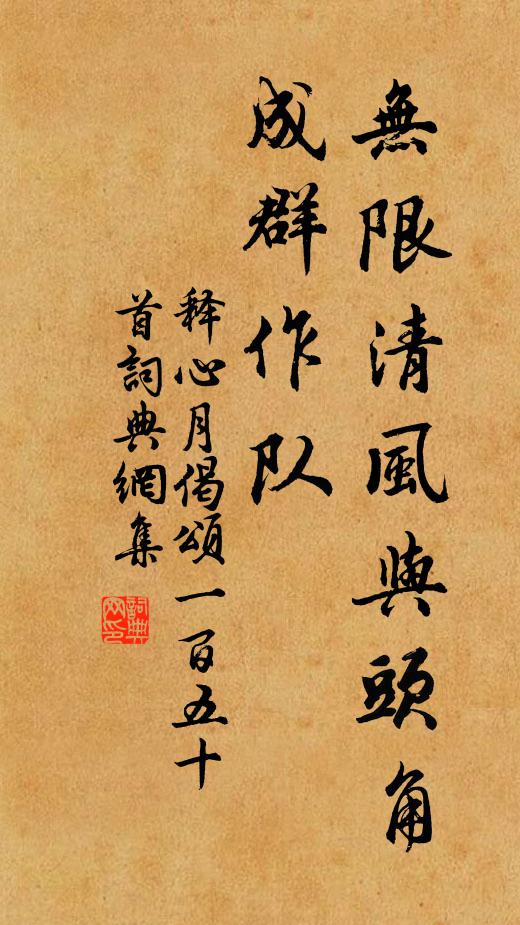 無限清風與頭角
成群作队
释心月偈頌一百五十
首詞典網集
詞典
网印